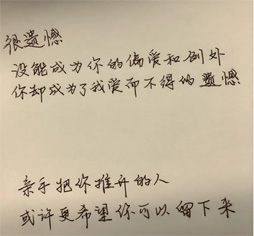 很遗憾
没能成为你的偏爱和例外
你却成为了我爱而不得的遗憾
亲手把你推开的人
或许更希望你可以留下来